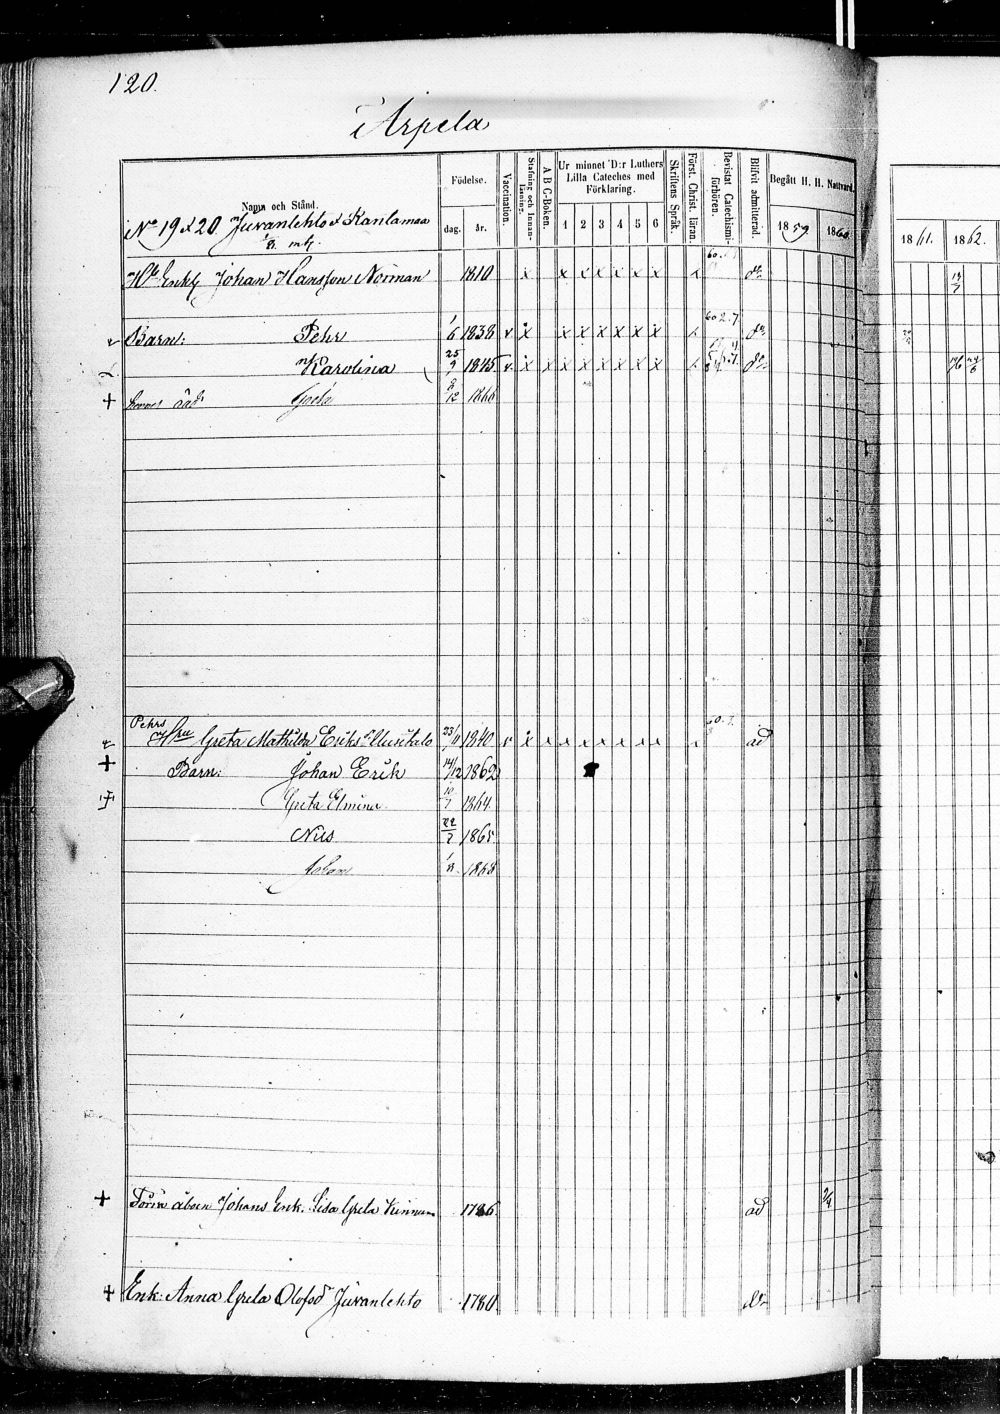 120.
Arpela
Namn och Stånd.
Födelse.
dag.
år.
Vaccination.
Stafning och Innan-läsning.
A B C-Boken.
Ur minnet D:r Luthers
Lilla Cateches med
Förklaring.
1 2 3 4 5 6
Skriftens Språk.
Först. Christ. läran.
Bevistat Catechismi-förhören.
Blifvit admitterad.
Begått H. H. Nattvard.
1859. 1860. 1861. 1862.
No 19 & 20 Juvanlehto & Kanlamaa
1/8 mtl.
Enkl Johan Hansson Norman 1810 x x x x x x x
Barn: Pehr 1/6 1838 v x x x x x x x
Karolina 25/9 1845 v x x x x x x x x
+ Greta 8/12 1866
Pehrs
Hru Greta Mathilda Eriks dr Uusitalo 23/11 1840 v x x x x x x x x ad
+ Barn: Johan Erik 14/12 1862
Greta Elmina 10/7 1864
Nils 22/7 1865
1/8 1868
+ åboen Johans Enk. Lisa Greta 1786 ad
+ Enk: Anna Greta Olofsdr Juvanlehto 1780